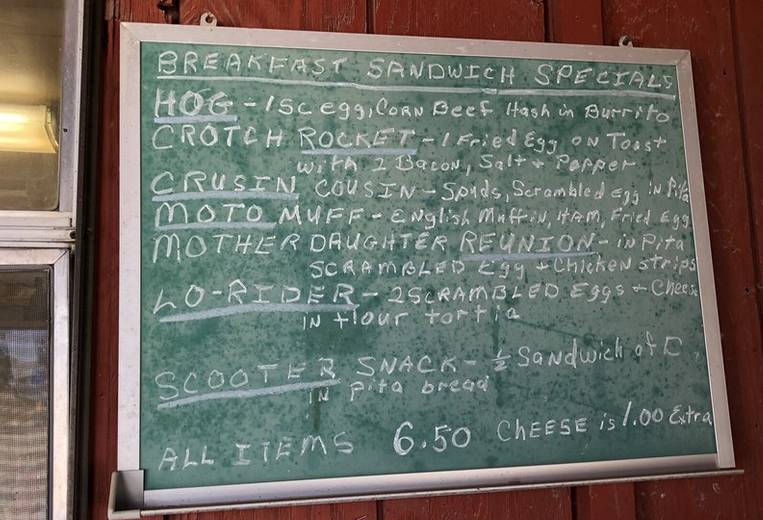 BREAKFAST SANDWICH SPECIALS
HOG - 1 SC egg, CORN Beef Hash in Burrito
CROTCH ROCKET - 1 Fried Egg ON Toast
with 2 Bacon, Salt + Pepper
CRUSIN COUSIN - Spuds, Scrambled egg in Pita
MOTO MUFF - English Muffin, HAM, Fried Egg
MOTHER DAUGHTER REUNION - in Pita
SCRAMBLED Egg + Chicken strips
LO-RIDER - 2 SCRAMBLED Eggs + Cheese
IN flour tortia
SCOOTER SNACK - ½ Sandwich of
IN pita bread
ALL ITEMS 6.50 CHEESE is 1.00 Extra